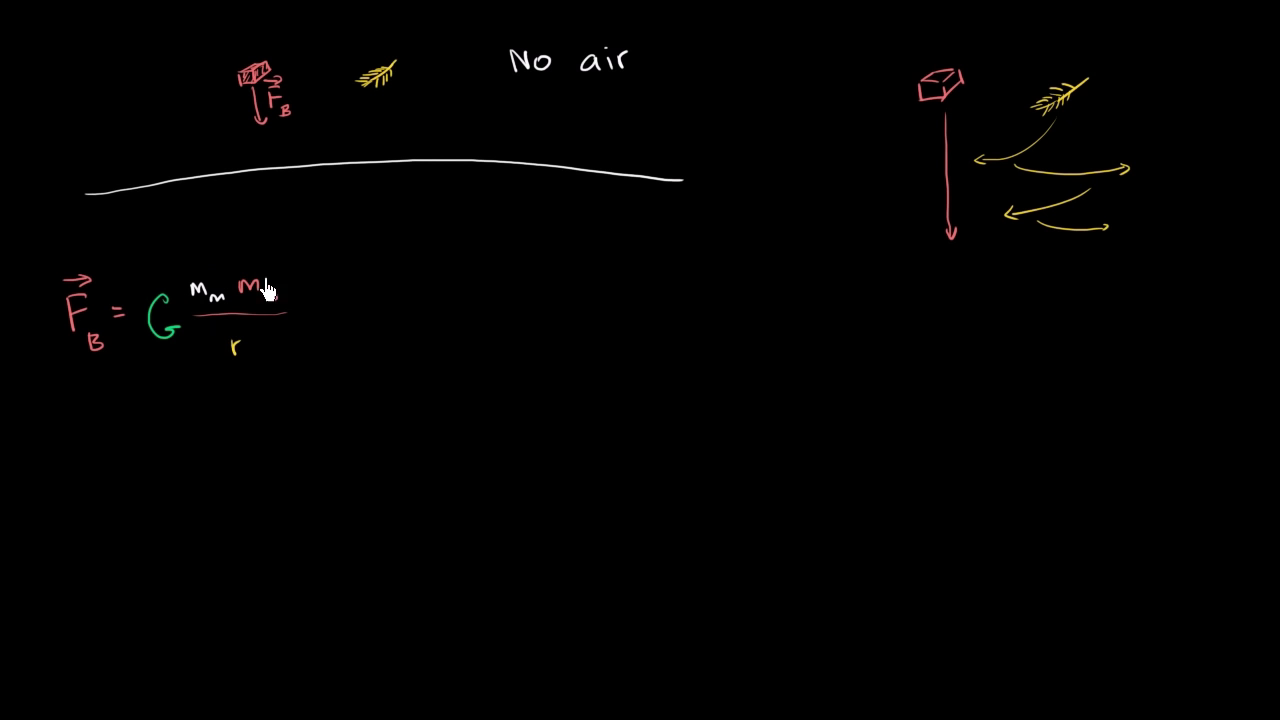 No air
F⃗_B
F⃗_B = G m_m m / r